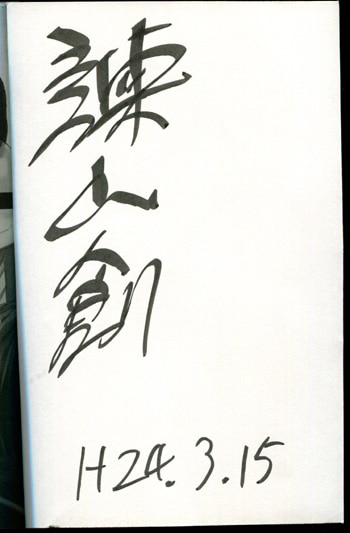 諫山創
H24.3.15